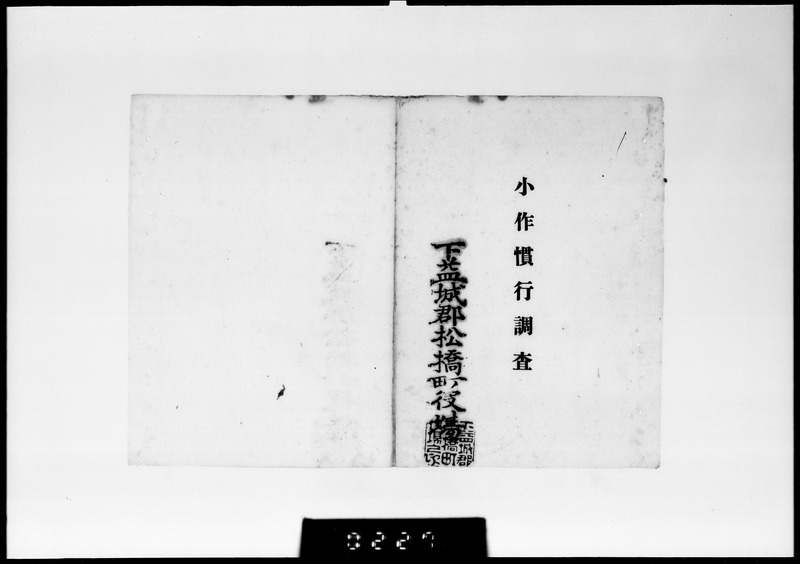 小作慣行調査
下益城郡松橋町役場
下益城郡
橋町
0227